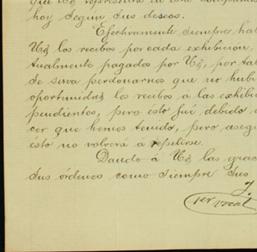 que Vs represen
hoy segun sus deseos.
Efectivamente siempre ha
Vs los recibos por cada exhibicion,
tualmente pagados por Vs, por ta
de sirva perdonarnos que no hub
oportunidad los recibos a las exhibi
pendientes, pero esto fué debido
cer que hemos tenido, pero aseg
esto no volvera a repetirse.
Dando á Vs las grac
sus órdenes como siempre sus
J.